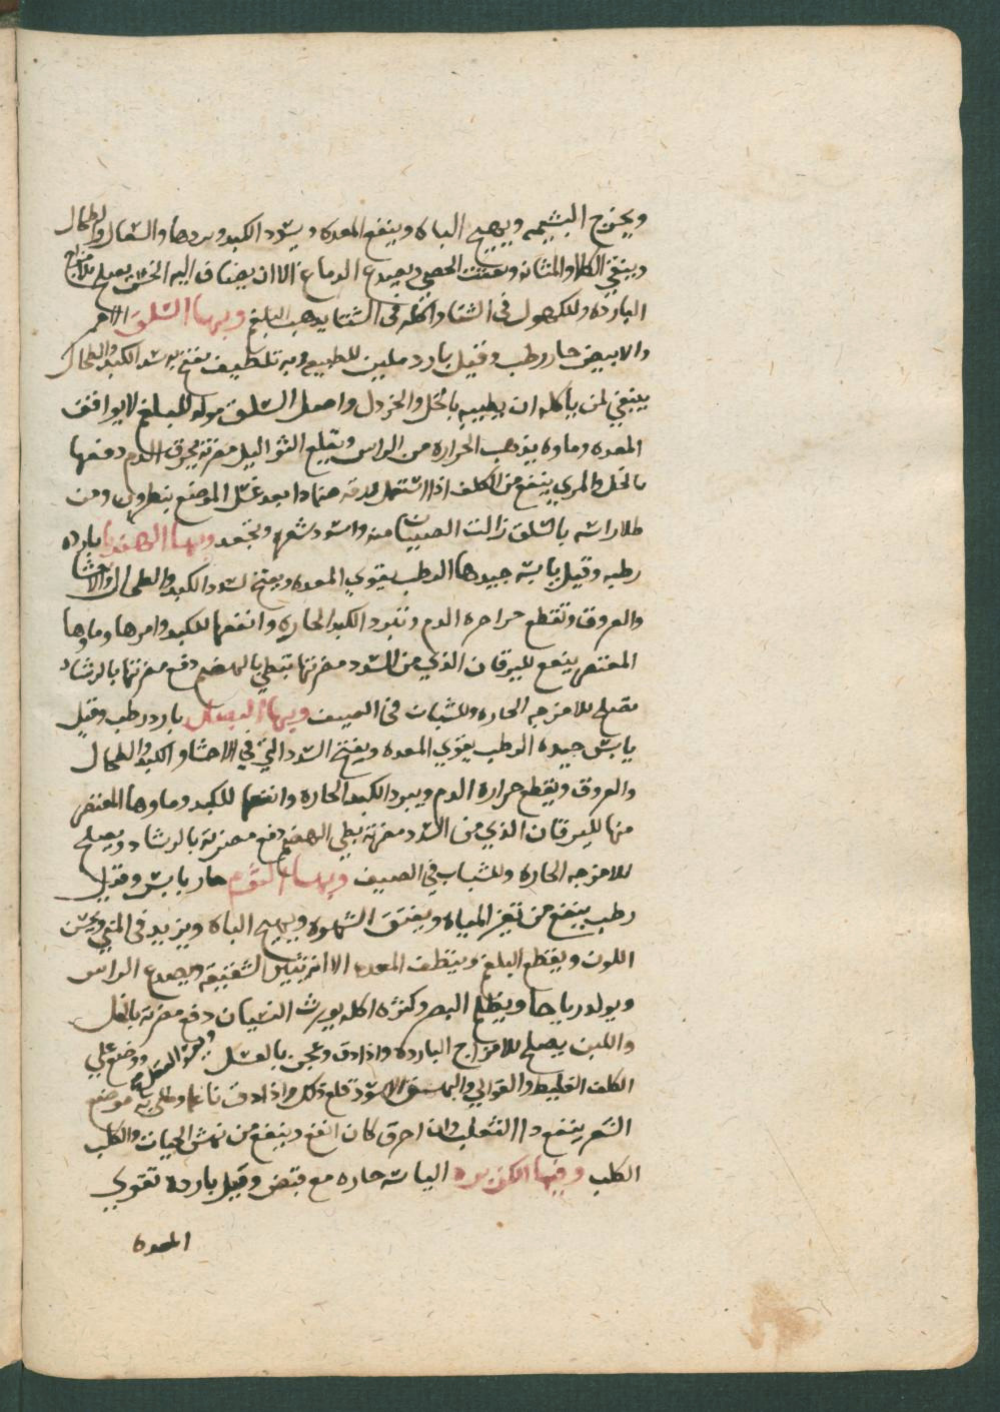 ويخرج المشيمه ويهيج الباه وينفع المعده وسدد الكبد وبردها والسعال والطحال
وينقي الكلا والمثانه ويفتت الحصى ويصدع الدماغ الا ان يضاف اليه الخل يصلح للامزاج
البارده وللكهول فى الشتا واكله فى الشتا يذهب البلغم وبها السلق الاحمر
والابيض حار رطب وقيل بارد ملين للطبيع وبه تلطيف يفتح به سدد الكبد والطحال
ينبغي لمن ياكله ان يطيبه بالخل والخردل واصل السلق مولد للبلغم لا يوافق
المعده وماوه يذهب الحراره من الراس ويقلع الثواليل مضرته يحرق الدم دفعها
بالخل والمري ينفع من الكلف اذا استعمل ورقه ضمادا بعد غسل الموضع بنطرون ومن
طلا راسه بالسلق زالت الصيبان منه واسود شعره وتجعد وبها الهندبا بارده
رطبه وقيل يابسه جيدها الرطب يقوي المعده ويفتح لسدد الكبد والطحال والاحشا
والعروق وتقطع حراره الدم وتبرد الكبد الحاره وانفعها للكبد وامرها وماوها
المعتصر ينفع لليرقان الذي من السدد مضرتها تبطي بالهضم دفع مضرتها بالرشاد
تصلح للامزجه الحاره وللشبات فى الصيف وبها البصل بارد رطب وقيل
يابس جيده الرطب يقوي المعده ويفتح السدد التي في الاحشا والكبد والطحال
والعروق ويقطع حراره الدم ويبرد الكبد الحاره وانفعها للكبد وماوها المعتصر
منها لليرقان الذي من السدد مضرته بطي الهضم دفع مضرته بالرشاد ويصلح
للامزجه الحاره وللشباب في الصيف وبها الثوم حار يابس وقيل
رطب ينفع من تغير المياه ويفتق الشهوه ويهيج الباه ويزيد فى المني ويحسن
اللون ويقطع البلغم وينظف المعده الا انه يثير الشقيقه ويصدع الراس
ويولد رياحا ويظلم البصر وكثره اكله يورث النسيان دفع مضرته بالخل
واللبن يصلح للامزاج البارده واذا دق وعجن بالعسل ووضع علي
الكلف الغليظ والقوالي والبهق الاسود قلع ذلك واذا دق ناعما وطلي به موضع
الشعر ينفع دا الثعلب وان احرق كان انفع وينفع من نهش الحيات والكلب
الكلب وفيها الكزبره اليابسه حاره مع قبض وقيل بارده تقوي
المعده